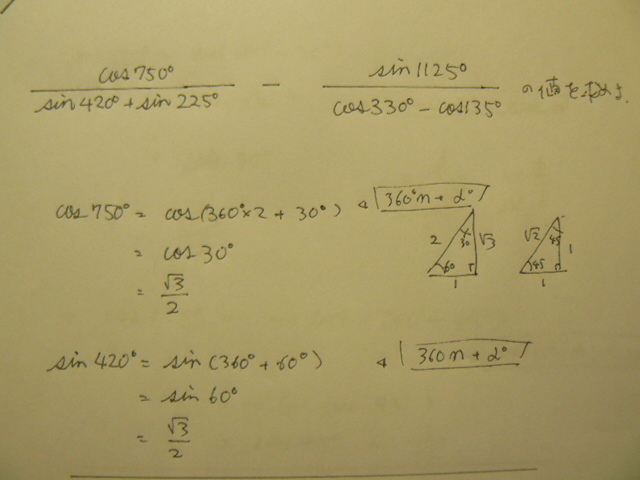 cos750° / (sin420° + sin225°) − sin1125° / (cos330° − cos135°) の値を求めよ.
cos750° = cos(360°×2 + 30°) ◁ 360°n + α°
= cos30°
= √3/2
2 30 √3 60 1
√2 45 1 45 1
sin420° = sin(360° + 60°) ◁ 360n + α°
= sin60°
= √3/2